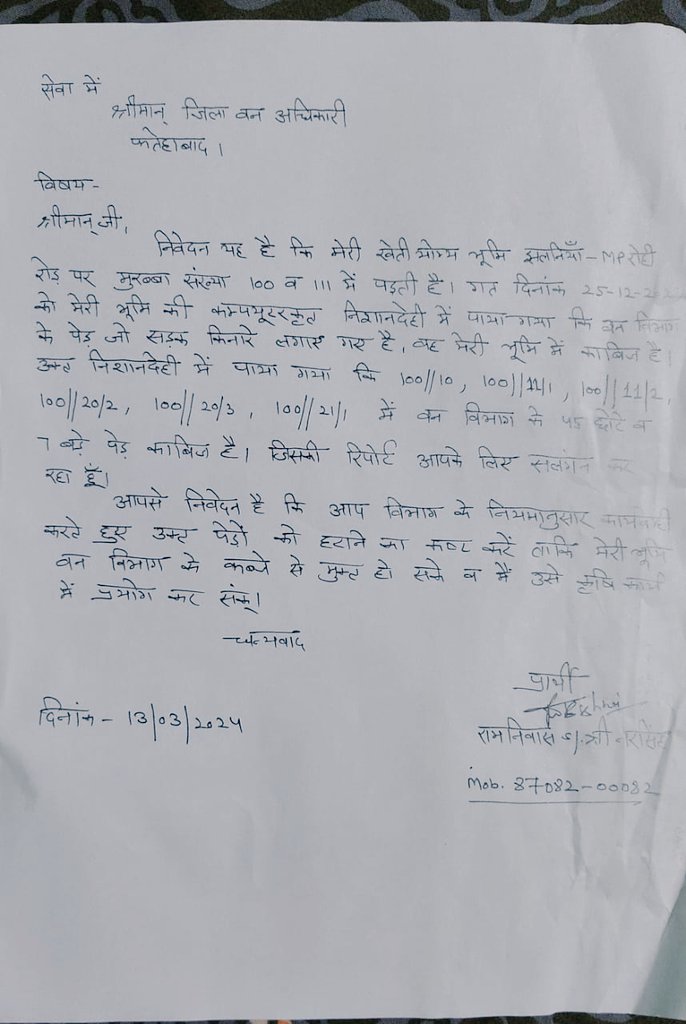 सेवा में
श्रीमान् जिला वन अधिकारी
फतेहाबाद।
विषय-
श्रीमान् जी,
निवेदन यह है कि मेरी खेती योग्य भूमि झलनियाँ-MP रोही
रोड़ पर मुरब्बा संख्या 100 व 111 में पड़ती है। गत दिनांक 25-12-
को मेरी भूमि की कम्पयूटरकृत निशानदेही में पाया गया कि वन विभाग
के पेड़ जो सड़क किनारे लगाए गए है, वह मेरी भूमि में काबिज है।
उक्त निशानदेही में पाया गया कि 100//10, 100//11/1, 100//11/2,
100//20/2, 100//20/3, 100//21/1 में वन विभाग के छोटे व
7 बड़े पेड़ काबिज है। जिसकी रिपोर्ट आपके लिए सलंगन कर
रहा हूँ।
आपसे निवेदन है कि आप विभाग के नियमानुसार कार्यवाही
करते हुए उक्त पेड़ों को हटाने का कष्ट करें ताकि मेरी भूमि
वन विभाग के कब्जे से मुक्त हो सके व मैं उसे कृषि कार्य
में प्रयोग कर सकूं।
धन्यवाद
प्रार्थी
दिनांक - 13/03/2024
रामनिवास S/. श्री
Mob. 87082-00082